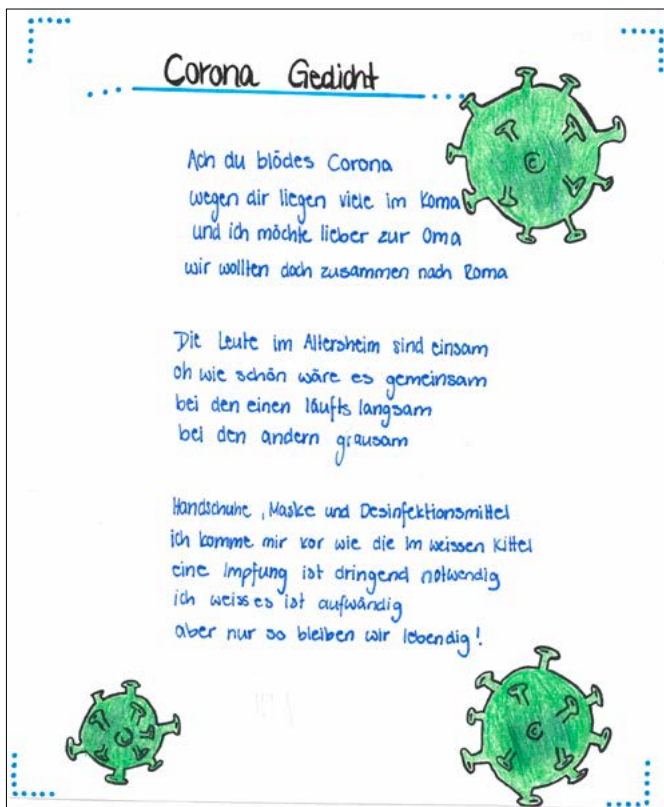 Corona Gedicht
Ach du blödes Corona
wegen dir liegen viele im Koma
und ich möchte lieber zur Oma
wir wollten doch zusammen nach Roma
Die Leute im Altersheim sind einsam
oh wie schön wäre es gemeinsam
bei den einen läufts langsam
bei den andern grausam
Handschuhe, Maske und Desinfektionsmittel
ich komme mir vor wie die im weissen Kittel
eine Impfung ist dringend notwendig
ich weiss es ist aufwändig
aber nur so bleiben wir lebendig!
C
C
C